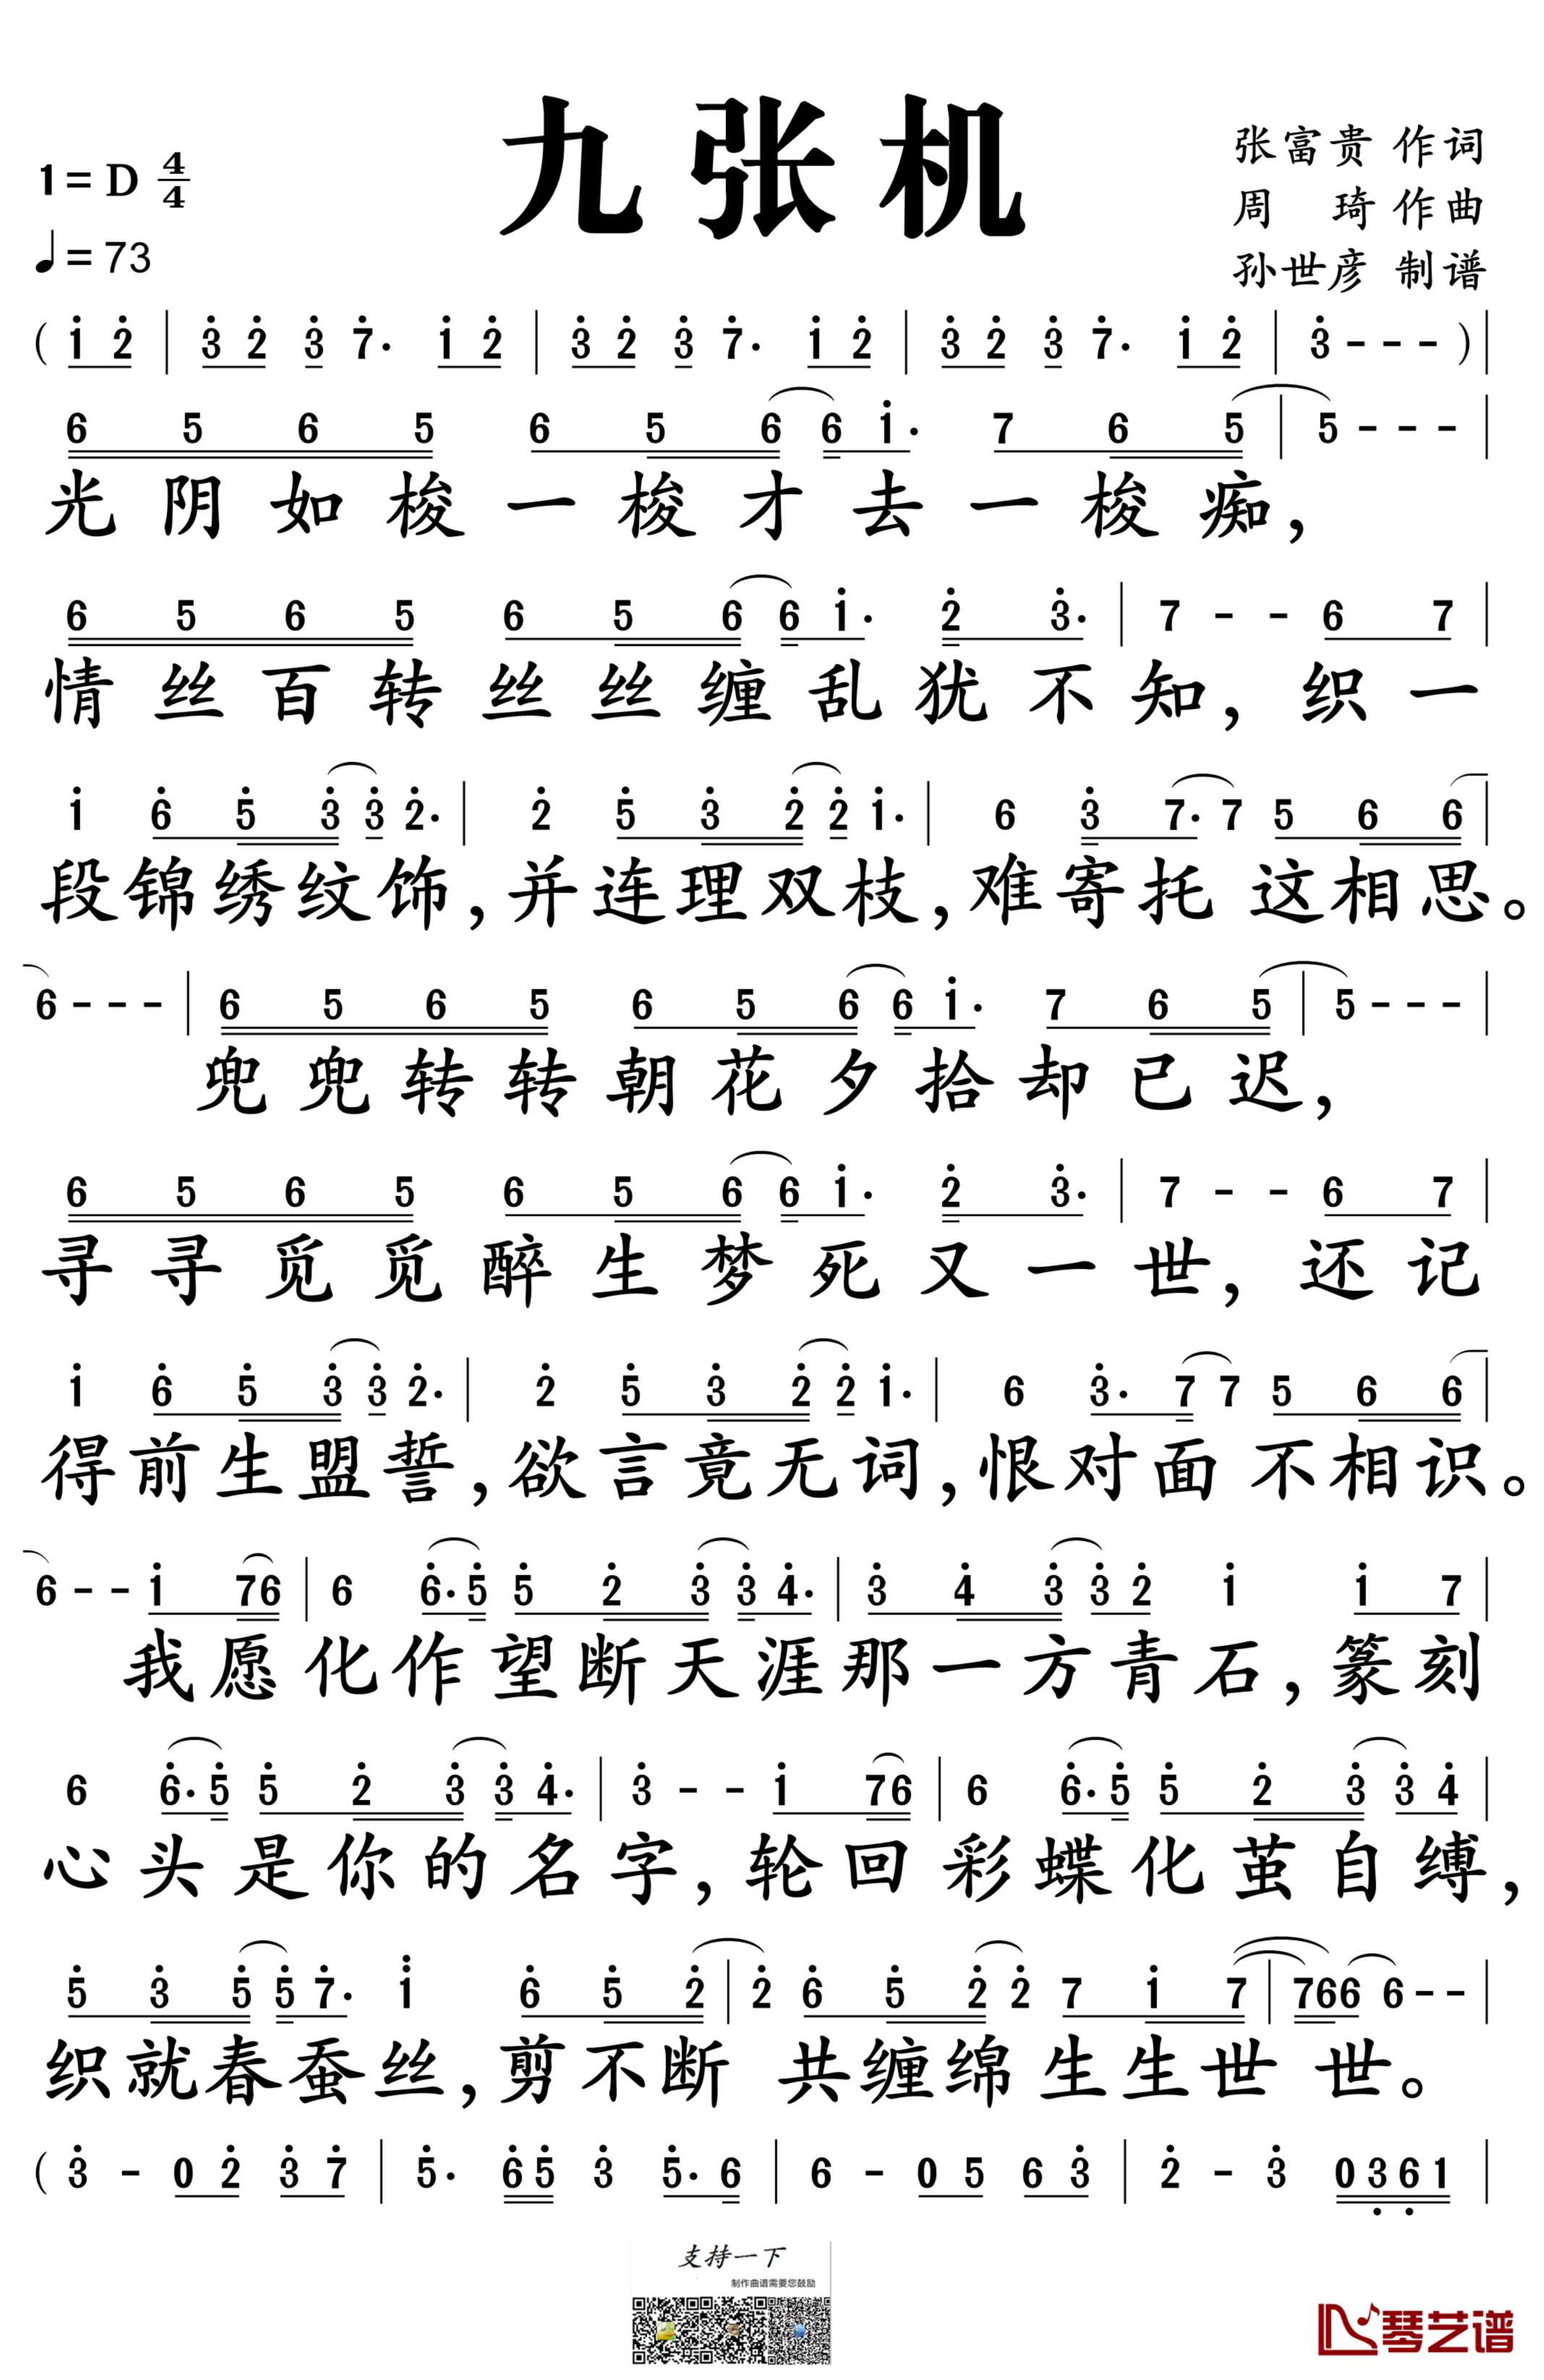 九张机
1=D 4/4
♩=73
张富贵 作词
周 琦 作曲
孙世彦 制谱
( i̇ 2̇ | 3̇ 2̇ 3̇ 7̇· i̇ 2̇ | 3̇ 2̇ 3̇ 7̇· i̇ 2̇ | 3̇ 2̇ 3̇ 7̇· i̇ 2̇ | 3̇ - - - ) |
6 5 6 5 6 5 6 6 i̇· 7 6 5 | 5 - - - |
光阴如梭一梭才去一梭痴，
6 5 6 5 6 5 6 6 i̇· 2̇ 3̇· | 7 - - 6 7 |
情丝百转丝丝缠乱犹不知，织一
i̇ 6̇ 5̇ 3̇ 3̇ 2̇· | 2̇ 5̇ 3̇ 2̇ 2̇ i̇· | 6 3̇ 7· 7 5 6 6 |
段锦绣纹饰，并连理双枝，难寄托 这相思。
6 - - - | 6 5 6 5 6 5 6 6 i̇· 7 6 5 | 5 - - - |
兜兜转转朝花夕拾却已迟，
6 5 6 5 6 5 6 6 i̇· 2̇ 3̇· | 7 - - 6 7 |
寻寻觅觅醉生梦死又一世，还记
i̇ 6̇ 5̇ 3̇ 3̇ 2̇· | 2̇ 5̇ 3̇ 2̇ 2̇ i̇· | 6 3̇· 7 7 5 6 6 |
得前生盟誓，欲言竟无词，恨对面 不相识。
6 - - i̇ 7 6 | 6 6̇· 5̇ 5̇ 2̇ 3̇ 3̇ 4̇· | 3̇ 4̇ 3̇ 3̇ 2̇ i̇ i̇ 7 |
我愿化作望断天涯那一方青石，篆刻
6 6̇· 5̇ 5̇ 2̇ 3̇ 3̇ 4̇· | 3̇ - - i̇ 7 6 | 6 6̇· 5̇ 5̇ 2̇ 3̇ 3̇ 4̇ |
心头是你的名字，轮回彩蝶化茧自缚，
5̇ 3̇ 5̇ 5̇ 7̇· 1̈ 6̇ 5̇ 2̇ | 2̇ 6̇ 5̇ 2̇ 2̇ 7 i̇ 7 | 7 6 6 6 - - |
织就春蚕丝，剪不断 共缠绵生生世 世。
( 3̇ - 0 2̇ 3̇ 7̇ | 5̇· 6̇ 5̇ 3̇ 5̇· 6 | 6 - 0 5 6 3̇ | 2̇ - 3̇ 0 3̣ 6̣ 1 |
支持一下
制作曲谱需要您鼓励
琴艺谱